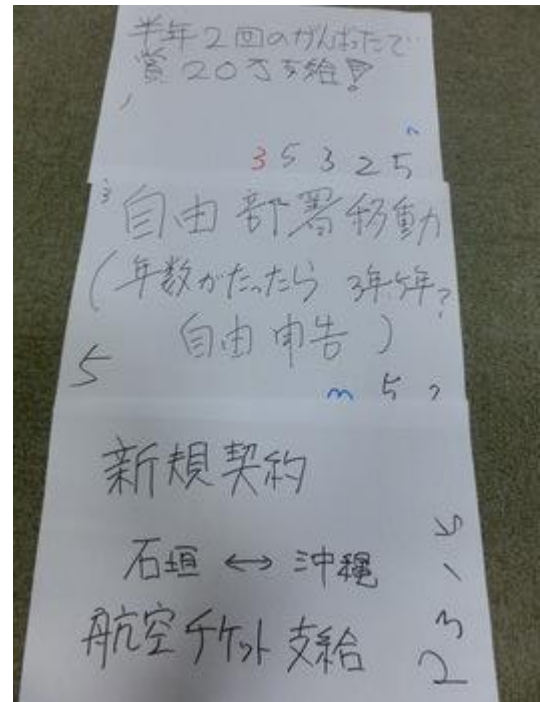 半年2回のがんばったで
賞20万支給!
3 5 3 2 5
3
自由部署移動
(年数がたったら 3年5年?
自由申告)
5
5
新規契約
石垣 ↔ 沖縄
航空チケット支給
2 3